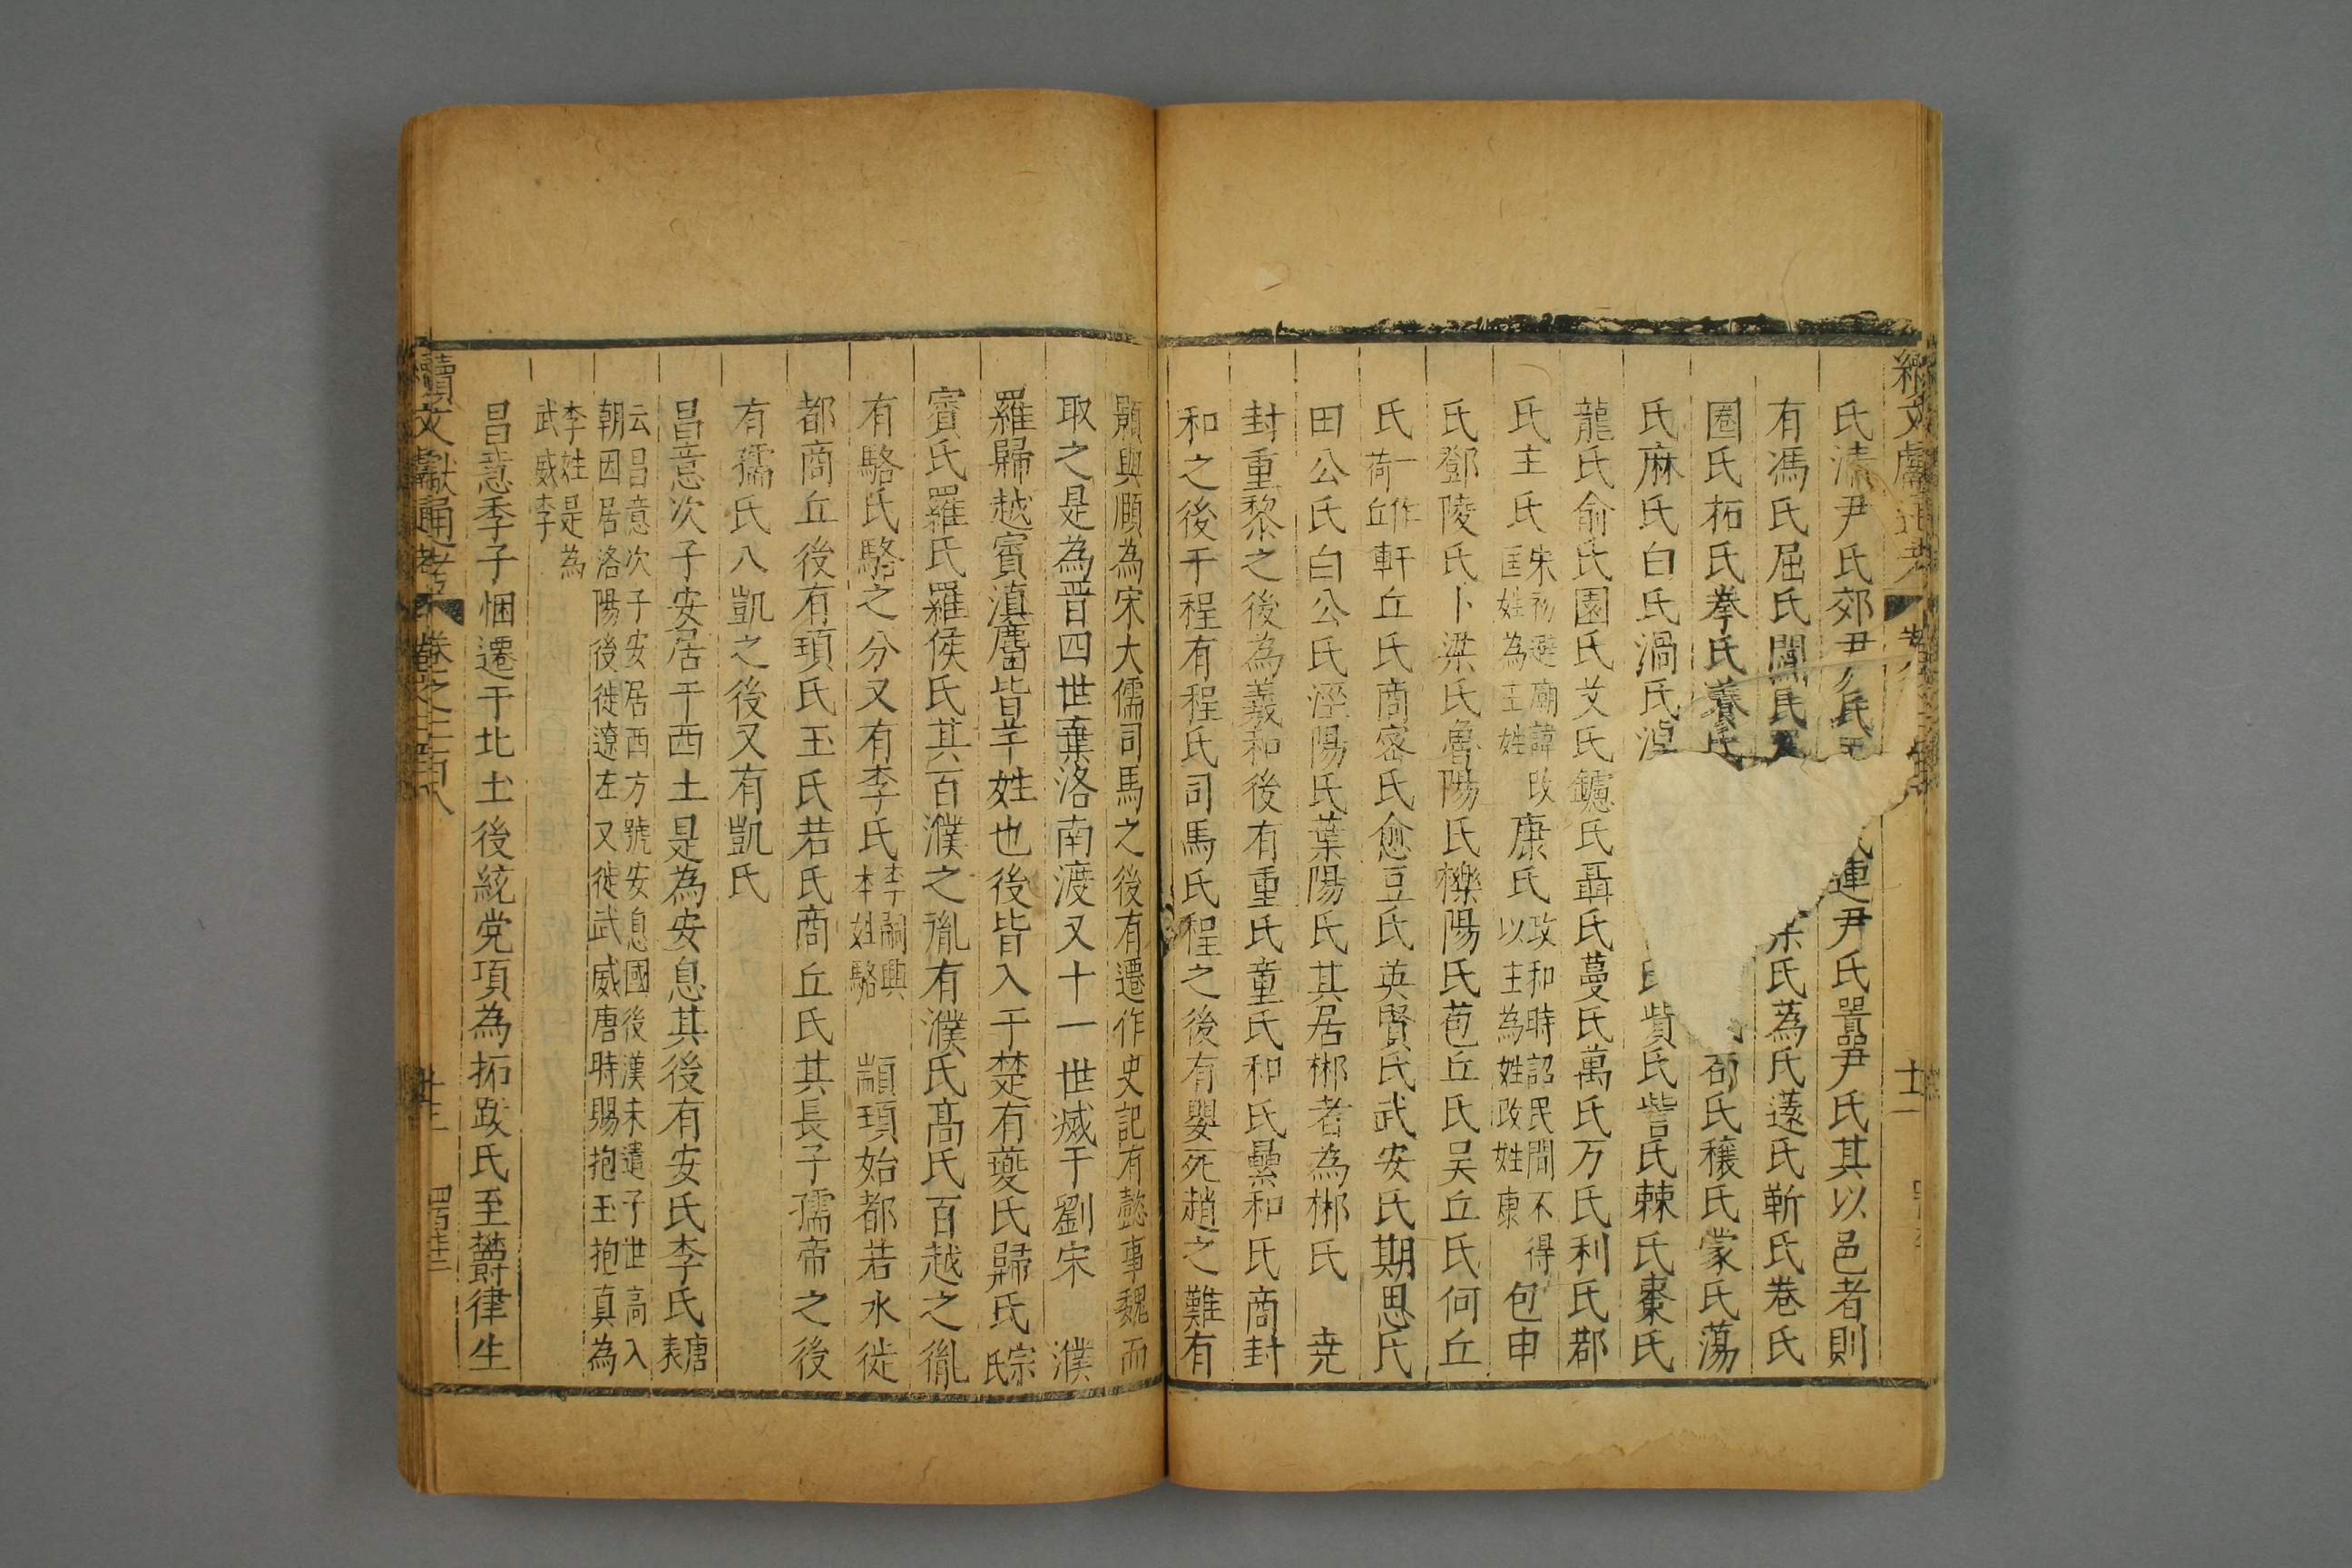 氏清尹氏郊尹氏連尹氏嚣尹氏其以邑者則
有馮氏屈氏闘氏氏蒍氏薳氏靳氏巷氏
圈氏柘氏拳氏養氏氏穰氏蒙氏蕩
氏麻氏白氏渦氏貲氏訾氏棘氏棗氏
龍氏俞氏園氏艾氏鑢氏聶氏蔓氏萬氏万氏利氏郡
氏主氏宋初避廟諱改匡姓為主姓康氏政和時詔民間不得以主為姓改姓康包申
氏鄧陵氏卜梁氏魯陽氏櫟陽氏苞丘氏吴丘氏何丘
氏一作荷丘軒丘氏商宻氏愈豆氏英賢氏武安氏期思氏
田公氏白公氏涇陽氏葉陽氏其居郴者為郴氏 尭
封重黎之後為羲和後有重氏童氏和氏曅和氏商封
和之後于程有程氏司馬氏程之後有嬰死趙之難有
顥與頤為宋大儒司馬之後有遷作史記有懿事魏而
取之是為晋四世棄洛南渡又十一世滅于劉宋 濮
羅歸越賓滇麕皆芊姓也後皆入于楚有夔氏歸氏宗氏
賓氏羅氏羅侯氏其百濮之胤有濮氏髙氏百越之胤
有駱氏駱之分又有李氏李嗣興本姓駱 顓頊始都若水徙
都商丘後有頊氏玉氏若氏商丘氏其長子孺帝之後
有孺氏八凱之後又有凱氏
昌意次子安居于西土是為安息其後有安氏李氏唐表
云昌意次子安居西方號安息國後漢末遣子世高入
朝因居洛陽後徙遼左又徙武威唐時賜抱玉抱真為
李姓是為
武威李
昌意季子悃遷于北土後統党項為拓跋氏至欝律生
續文獻通考 卷之二百八